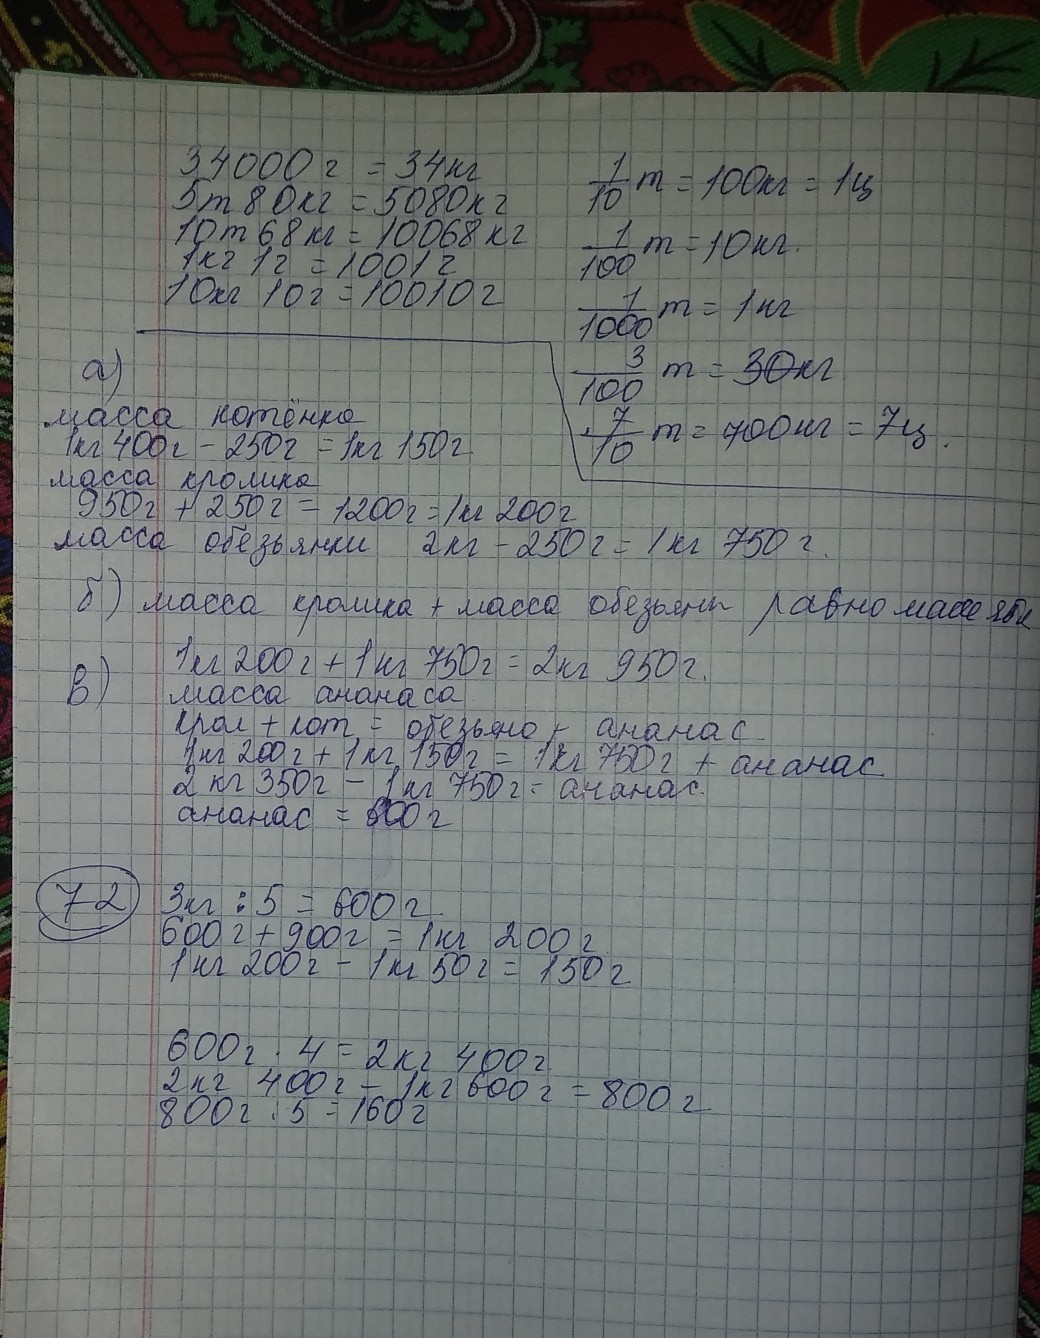 34000г = 34кг
5т 80кг = 5080кг
10т 68кг = 10068кг
1кг 1г = 1001г
10кг 10г = 10010г
1/10 т = 100кг = 1ц
1/100 т = 10кг.
1/1000 т = 1кг
3/100 т = 30кг
7/10 т = 700кг = 7ц.
а)
масса котёнка
1кг 400г - 250г = 1кг 150г
масса кролика
950г + 250г = 1200г = 1кг 200г
масса обезьянки 2кг - 250г = 1кг 750г.
б) масса кролика + масса обезьяны равно массе
1кг 200г + 1кг 750г = 2кг 950г.
в) масса ананаса
крол + кот = обезьяно + ананас
1кг 200г + 1кг 150г = 1кг 750г + ананас
2кг 350г - 1кг 750г = ананас.
ананас = 600г
72 3кг : 5 = 600г
600г + 900г = 1кг 200г
1кг 200г - 1кг 50г = 150г
600г · 4 = 2кг 400г
2кг 400г - 1кг 600г = 800г
800г : 5 = 160г